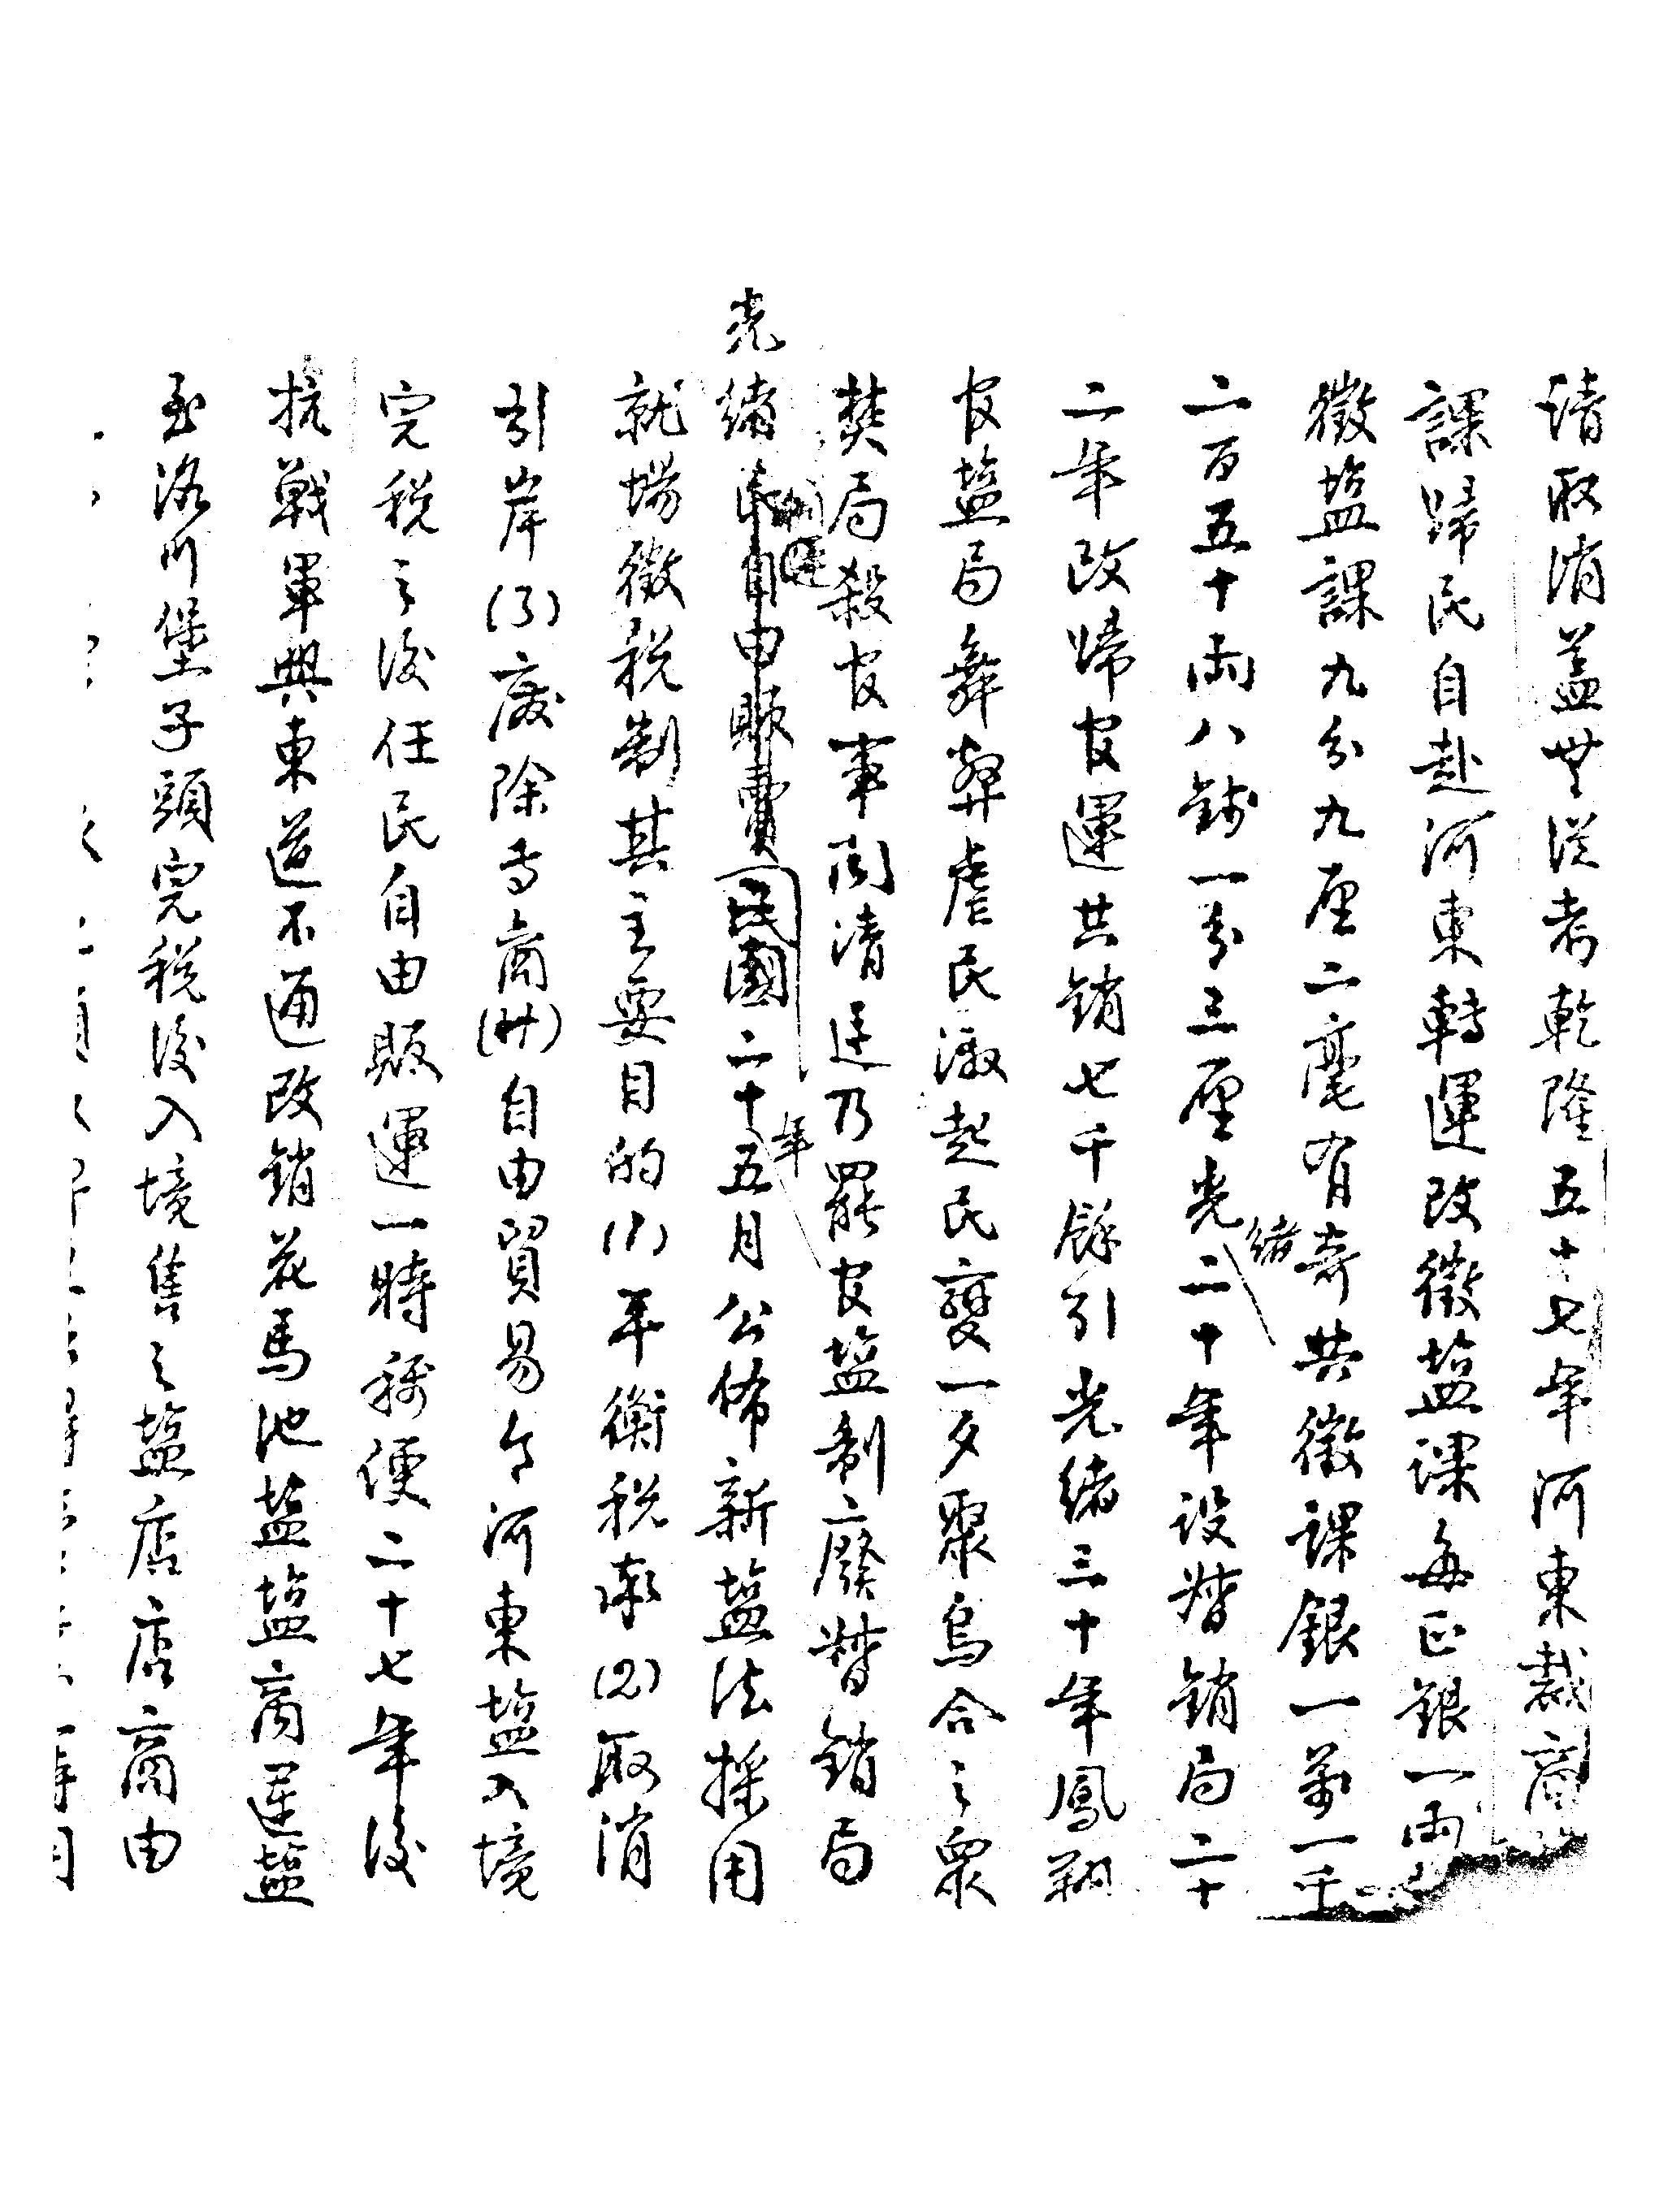 請取消蓋無從考乾隆五十七年河東裁商
課歸民自赴河東轉運改徵盐課每正銀一兩
徵盐課九分九厘二毫有奇共徵課銀一萬一千
二百五十兩八錢一分三厘光緒二十年设督销局二十
二年改歸官運共销七千餘引光緒三十年鳳翔
官盐局舞弊虐民激起民變一夕聚烏合之眾
焚局殺官事闻清廷乃罷官盐制廢督销局
光緒民國二十五年月公佈新盐法採用
就場徵税制其主要目的(1)平衡税率(2)取消
引岸(3)废除专商(4)自由貿易令河東盐入境
完税之後任民自由販運一時称便二十七年後
抗戰軍興東道不通改销花馬池盐盐商運盐
至洛川堡子頭完税後入境售之盐店店商由